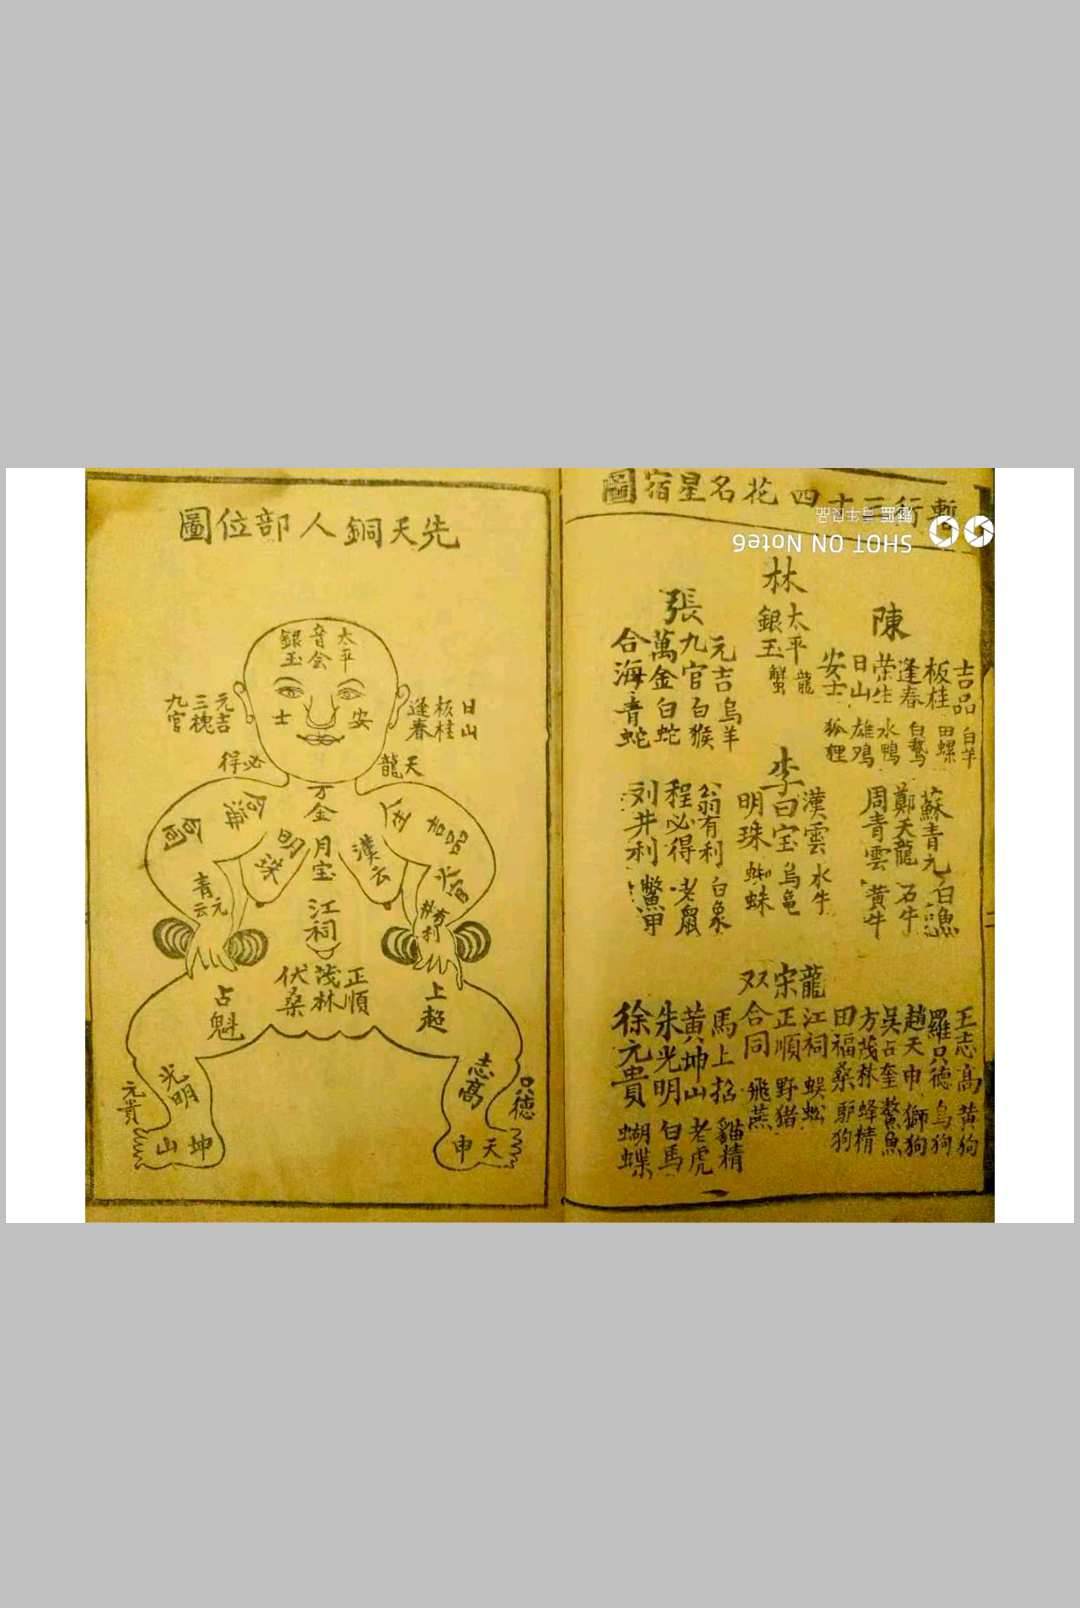 暫行三十四花名星宿圖
陳
吉品 白羊
板桂 田螺
逢春 白鵞
荣生 水鴨
日山 雄鸡
安士 狐狸
林
太平 龍
銀玉 蟹
張
元吉 烏羊
九官 白猴
萬金 白蛇
合海 青蛇
蘇青元 白魚
鄭天龍 石牛
周青雲 黃牛
李
漢雲 水牛
曰宝 烏龜
明珠 蜘蛛
翁有利 白象
程必得 老鼠
刘井利 鱉甲
王志高 黃狗
羅只德 烏狗
趙天申 獅狗
吳占奎 鰲魚
方茂林 蜂精
田福桑 驴狗
龍江祠 蜈蚣
宋正順 野猪
双合同 飛燕
馬上招 貓精
黃坤山 老虎
朱光明 白馬
徐元貴 蝴蝶
SHOT ON Note6
先天銅人部位圖
太平
音会
銀玉
安
士
日山
板桂
逢春
元吉
三槐
九官
天龍
必得
万金
吉品
合海
合同
月宝
漢云
明珠
火官
有利
元
青云
江祠
正順
茂林
伏桑
上超
占魁
志高
光明
只德
元貴
天申
坤山